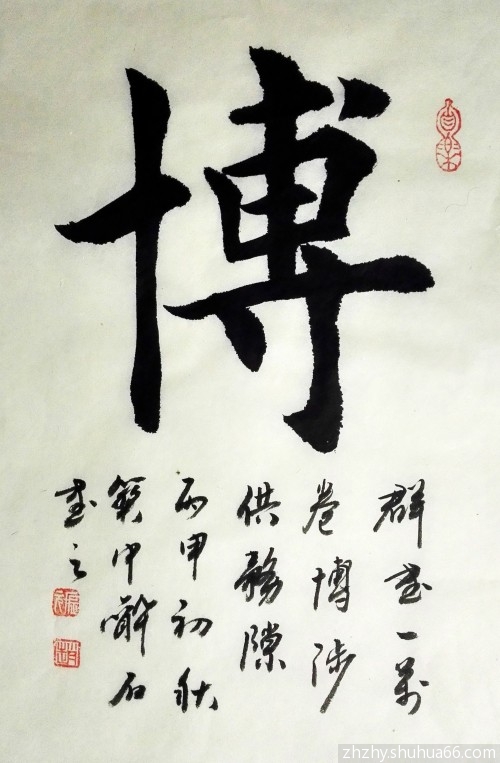 博
群書一萬
卷博涉
供務隙
丙申初秋
中嘯石
書之
zhzhy.shuhua66.com